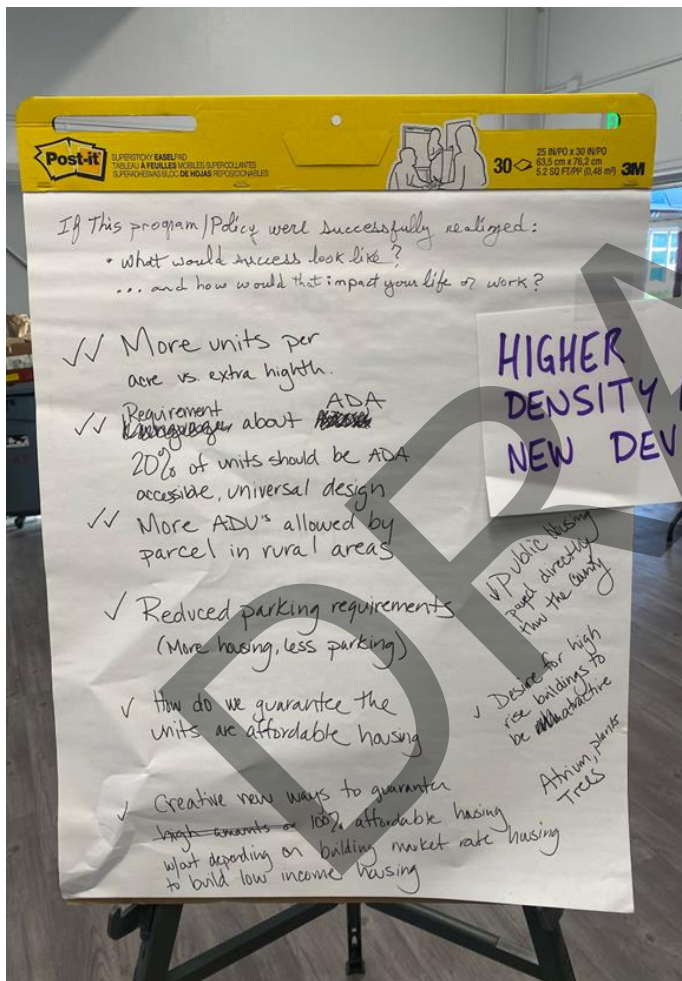 Post-it
SUPERSTICKY EASEL PAD
TABLEAU À FEUILLES MOBILES SUPERCOLLANTES
SUPERADHESIVAS BLOC DE HOJAS REPOSICIONABLES
30
25 IN/PO x 30 IN/PO
63,5 cm x 76,2 cm
5.2 SQ FT/PP (0,48 m²)
3M
If This program/Policy were successfully realized:
• What would success look like?
... and how would that impact your life or work?
✓✓ More units per
acre vs. extra highth.
Requirement ADA
✓✓ about
20% of units should be ADA
accessible, universal design
✓✓ More ADU's allowed by
parcel in rural areas
✓ Reduced parking requirements
(More housing, less parking)
✓ How do we guarantee the
units are affordable housing
✓ Creative new ways to guarantee
high amounts or 100% affordable housing
w/out depending on building market rate housing
to build low income housing
HIGHER
DENSITY
NEW DEV
✓ Public housing
payed directly
thru the County
✓ Desire for high
rise buildings to
be attractive
Atrium, plants
Trees
DRA